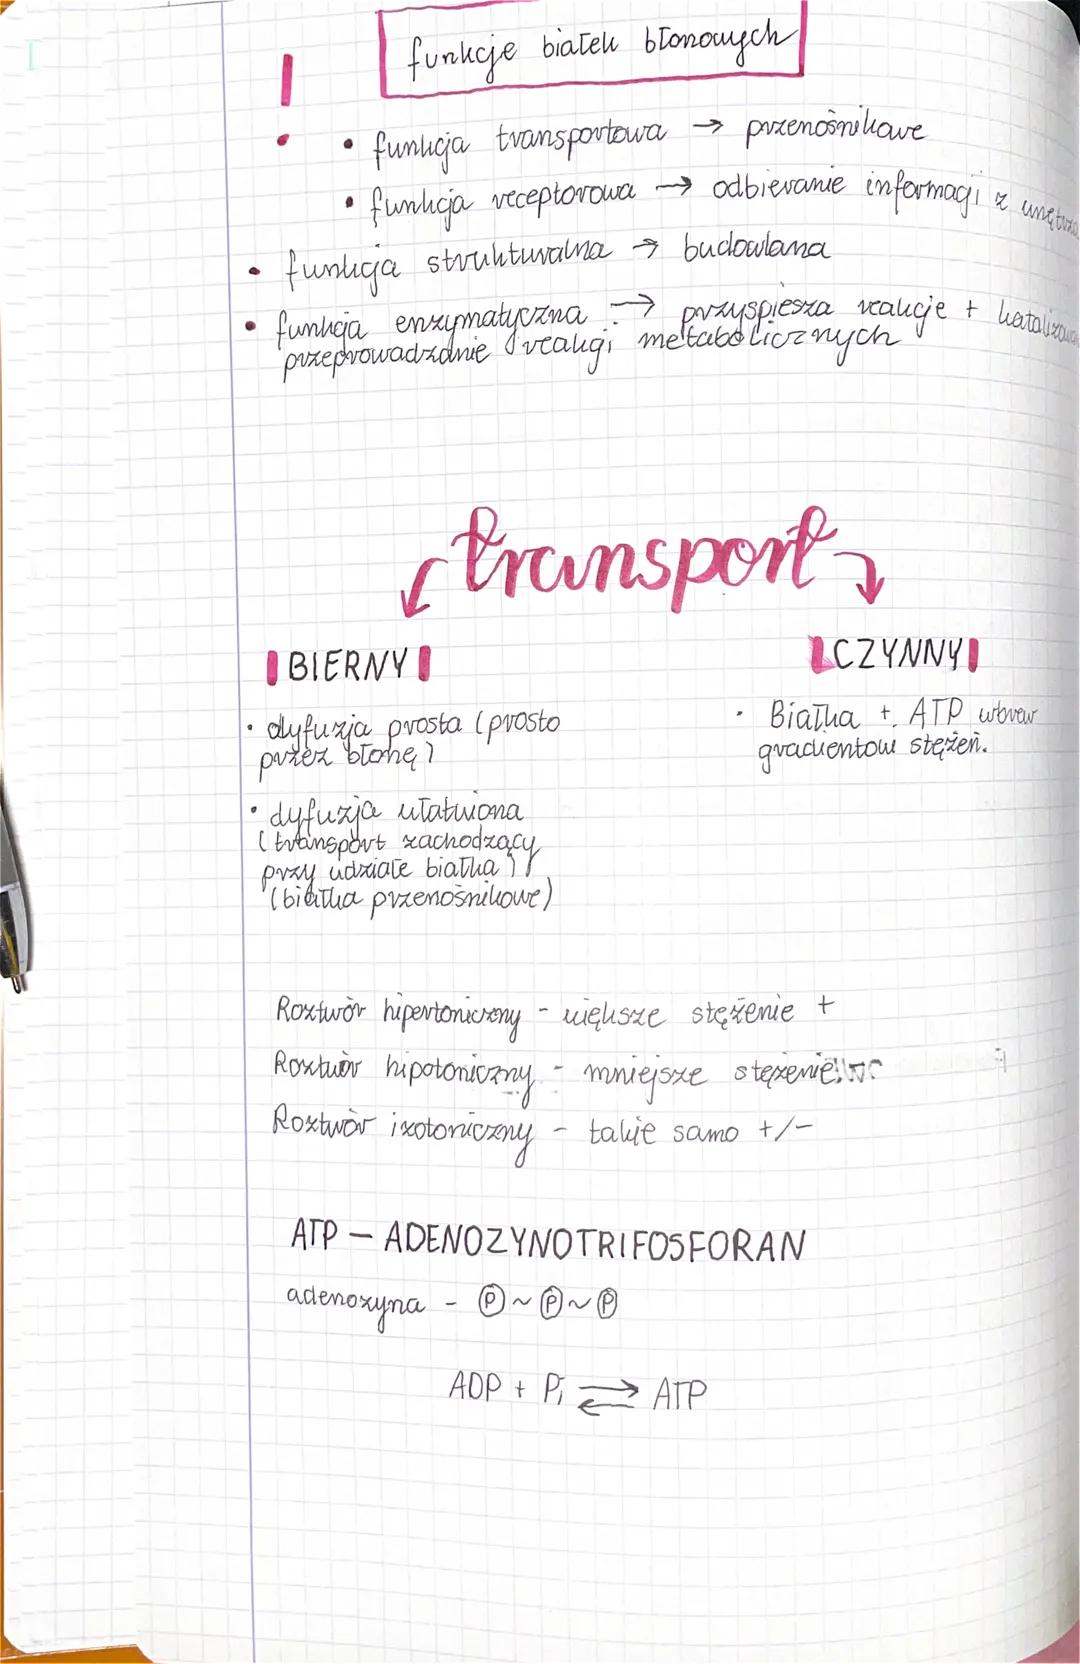 funkcje białek błonowych
! • funkcja transportowa → przenośnikowe
• funkcja receptorowa → odbieranie informacji z wnętrza
• funkcja strukturalna → budowlana
• funkcja enzymatyczna → przyspiesza reakcje +
przeprowadzanie reakcji metabolicznych
transport
BIERNY
CZYNNY
• dyfuzja prosta (prosto
przez błonę)
• dyfuzja ułatwiona
(transport zachodzący
przy udziale białka)
(białka przenośnikowe)
• Białka + ATP wbrew
gradientow stężeń.
Roztwór hipertoniczny - większe stężenie +
Roztwór hipotoniczny - mniejsze stężenie
Roztwór izotoniczny - takie samo +/-
ATP - ADENOZYNOTRIFOSFORAN
adenozyna - P ~ P ~ P
ADP + Pi ⇄ ATP